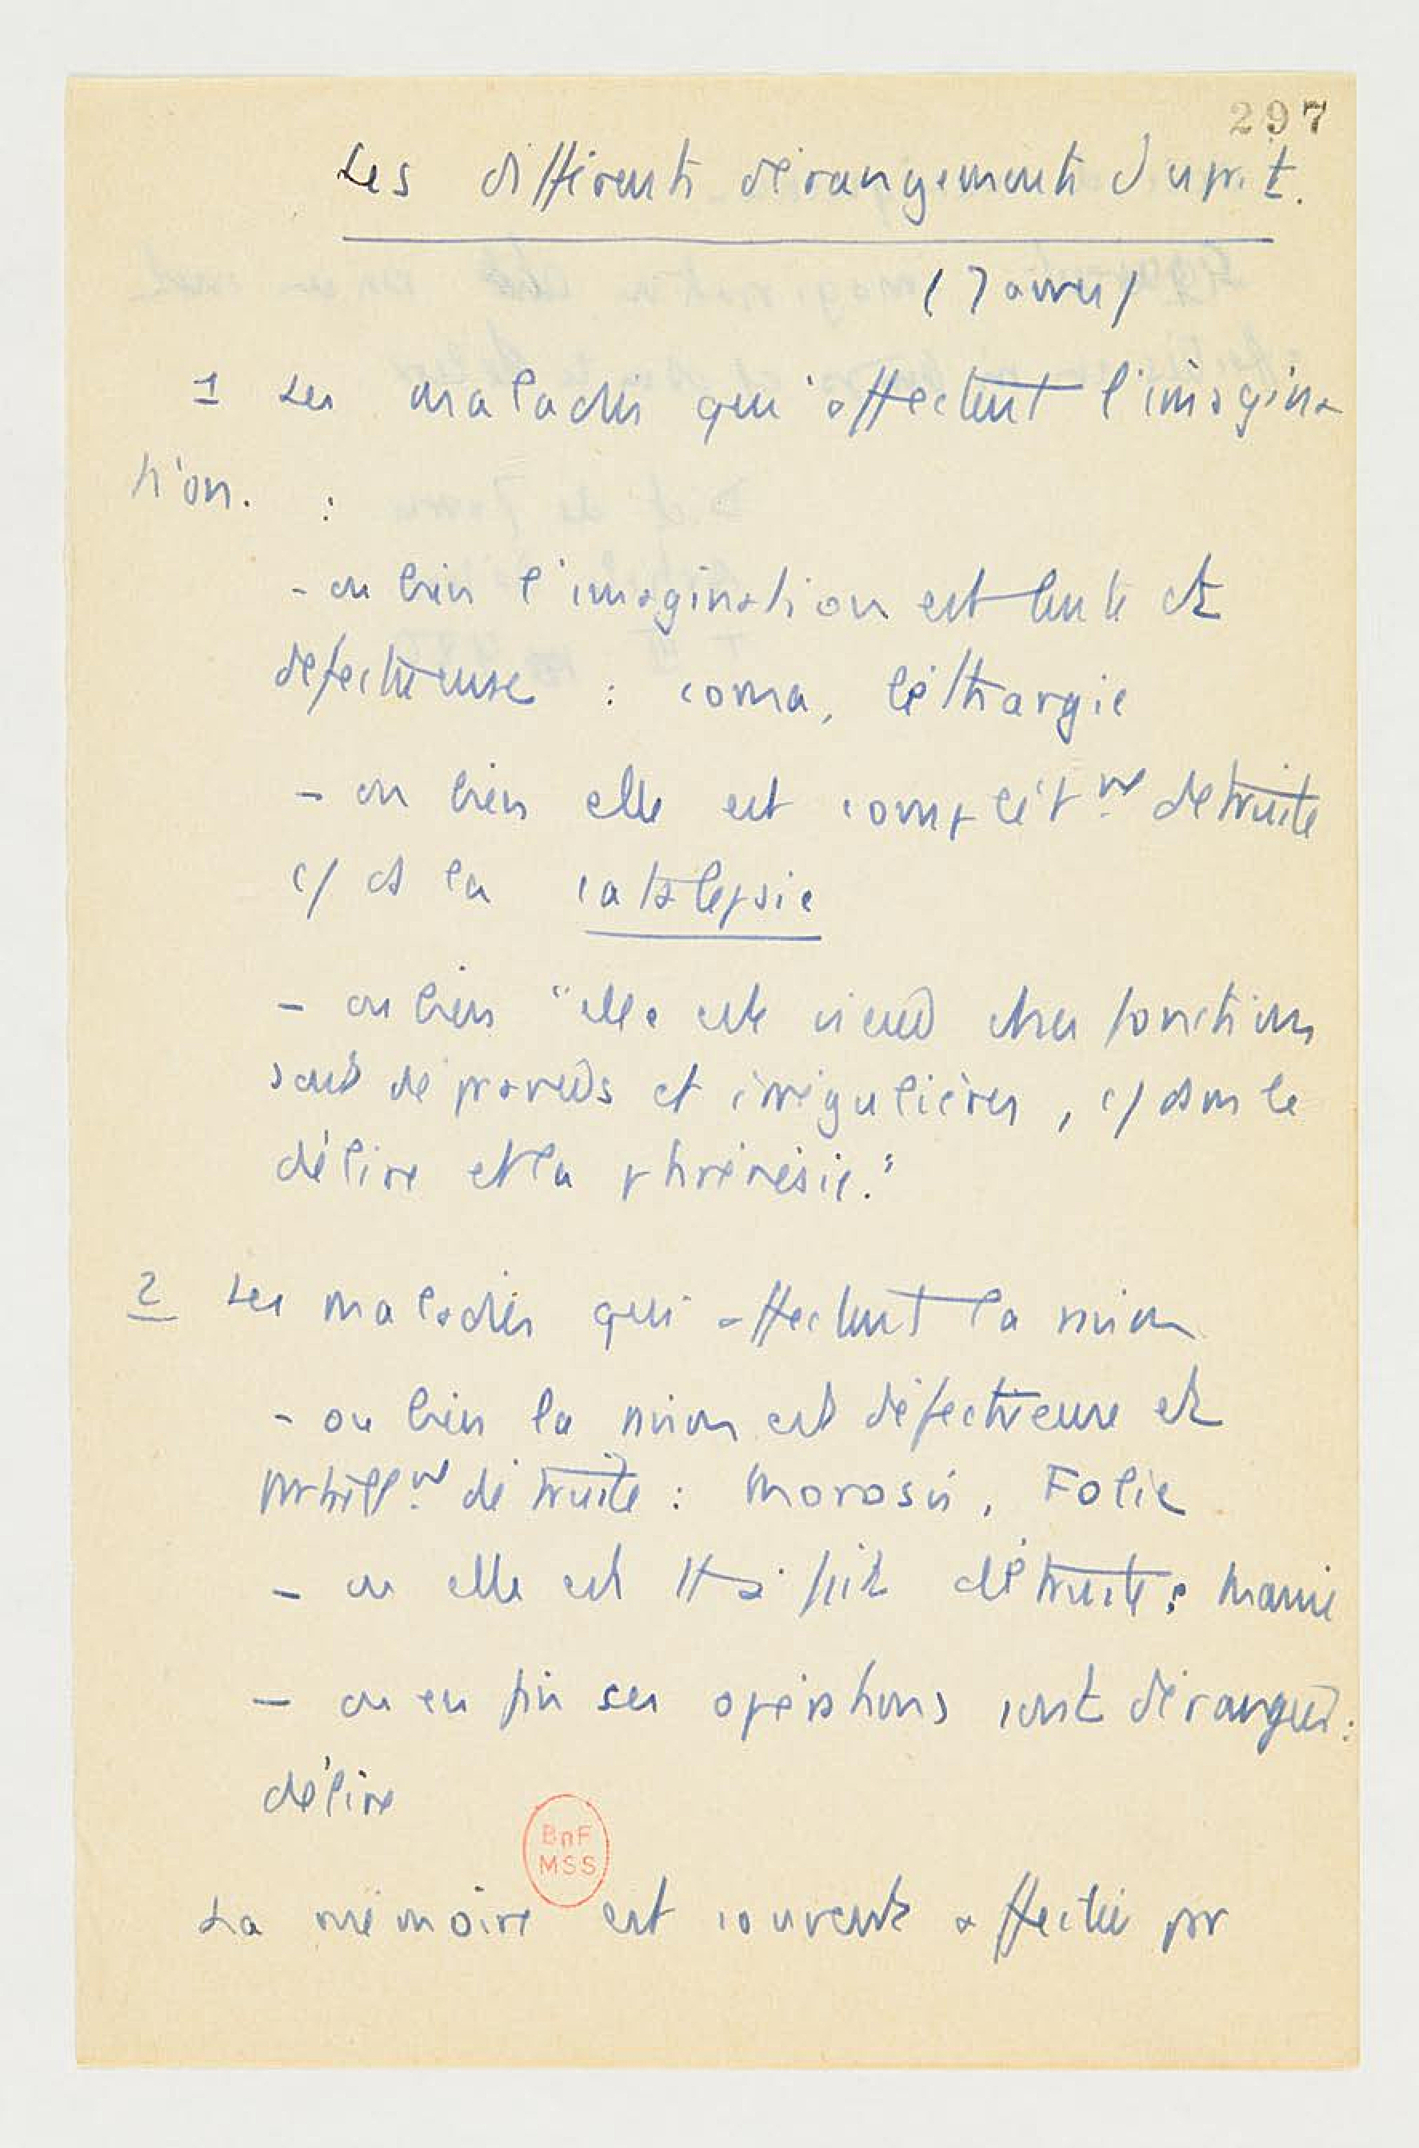 297
Les différents dérangements d'esprit.
(James)
1 Les maladies qui affectent l'imagina
tion. :
- ou bien l'imagination est lente et
défectueuse : coma, léthargie
- ou bien elle est complètmt détruite
c/ ds la catalepsie
- ou bien "elle est viciée et ses fonctions
sont dépravées et irrégulières, c/ dans le
délire et la phrénésie."
2 Les maladies qui affectent la raison
- ou bien la raison est défectueuse et
partiellmt détruite : Morosis, Folie
- ou elle est tt à fait détruite : Manie
- ou enfin ses opérations sont dérangées :
délire
BnF
MSS
La mémoire est souvent affectée par